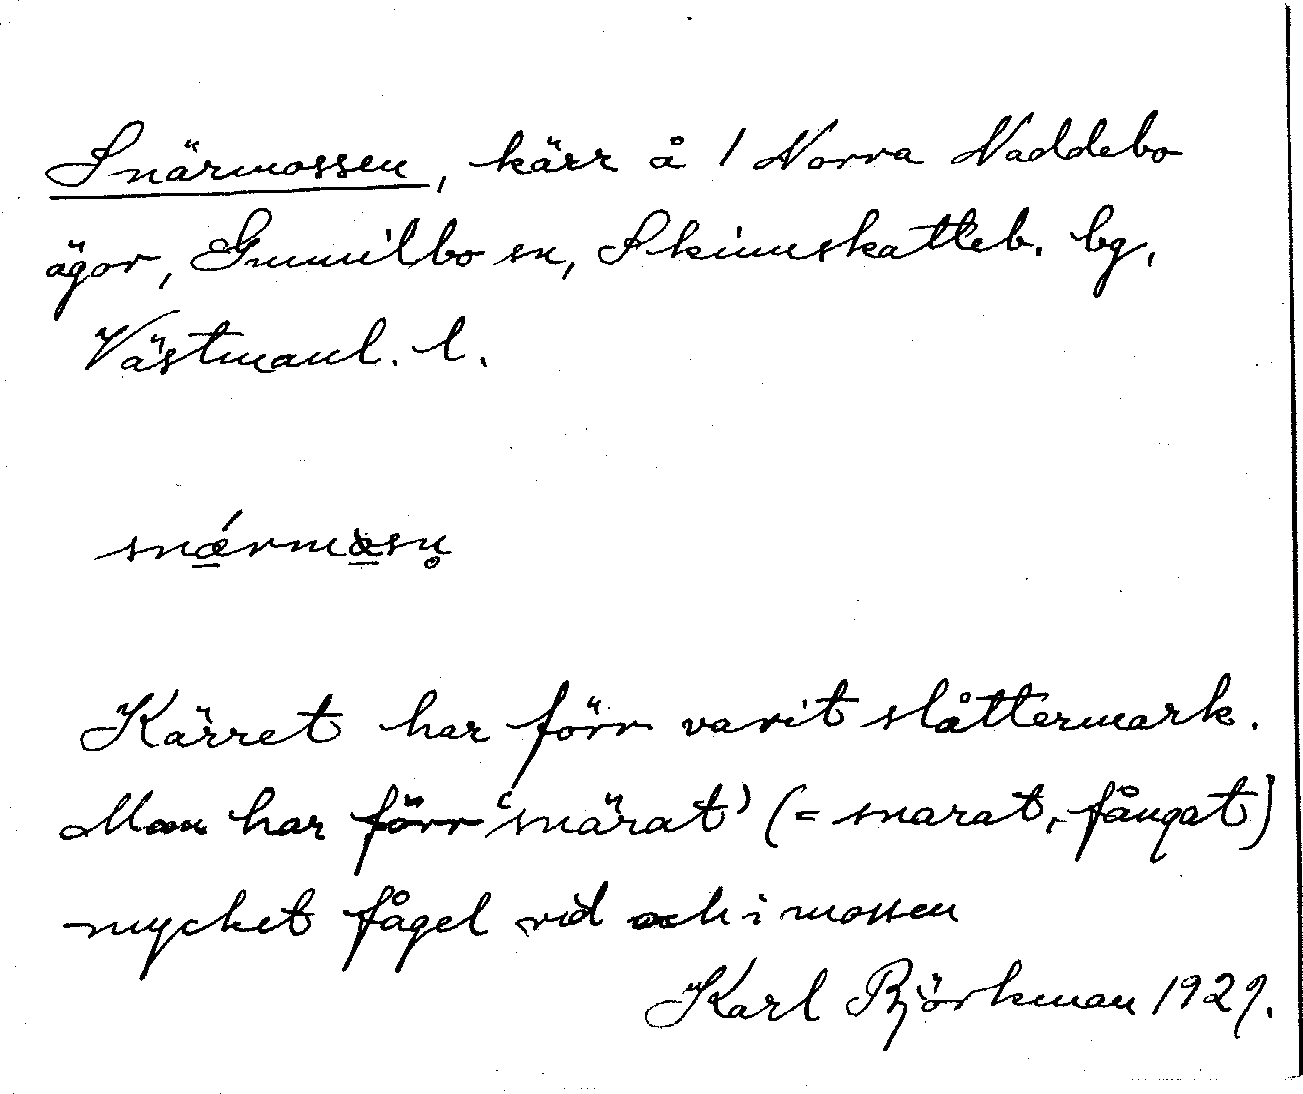 Snärmossen, kärr å 1 Norra Naddebo
ägor, Gunnilbo sn, Skinnskatteb. bg,
Västmanl. l.
snǽrmåsn̥
Kärret har förr varit slåttermark.
Man har förr 'snärat' (= snarat, fångat)
mycket fågel vid och i mossen
Karl Björkman 1929.